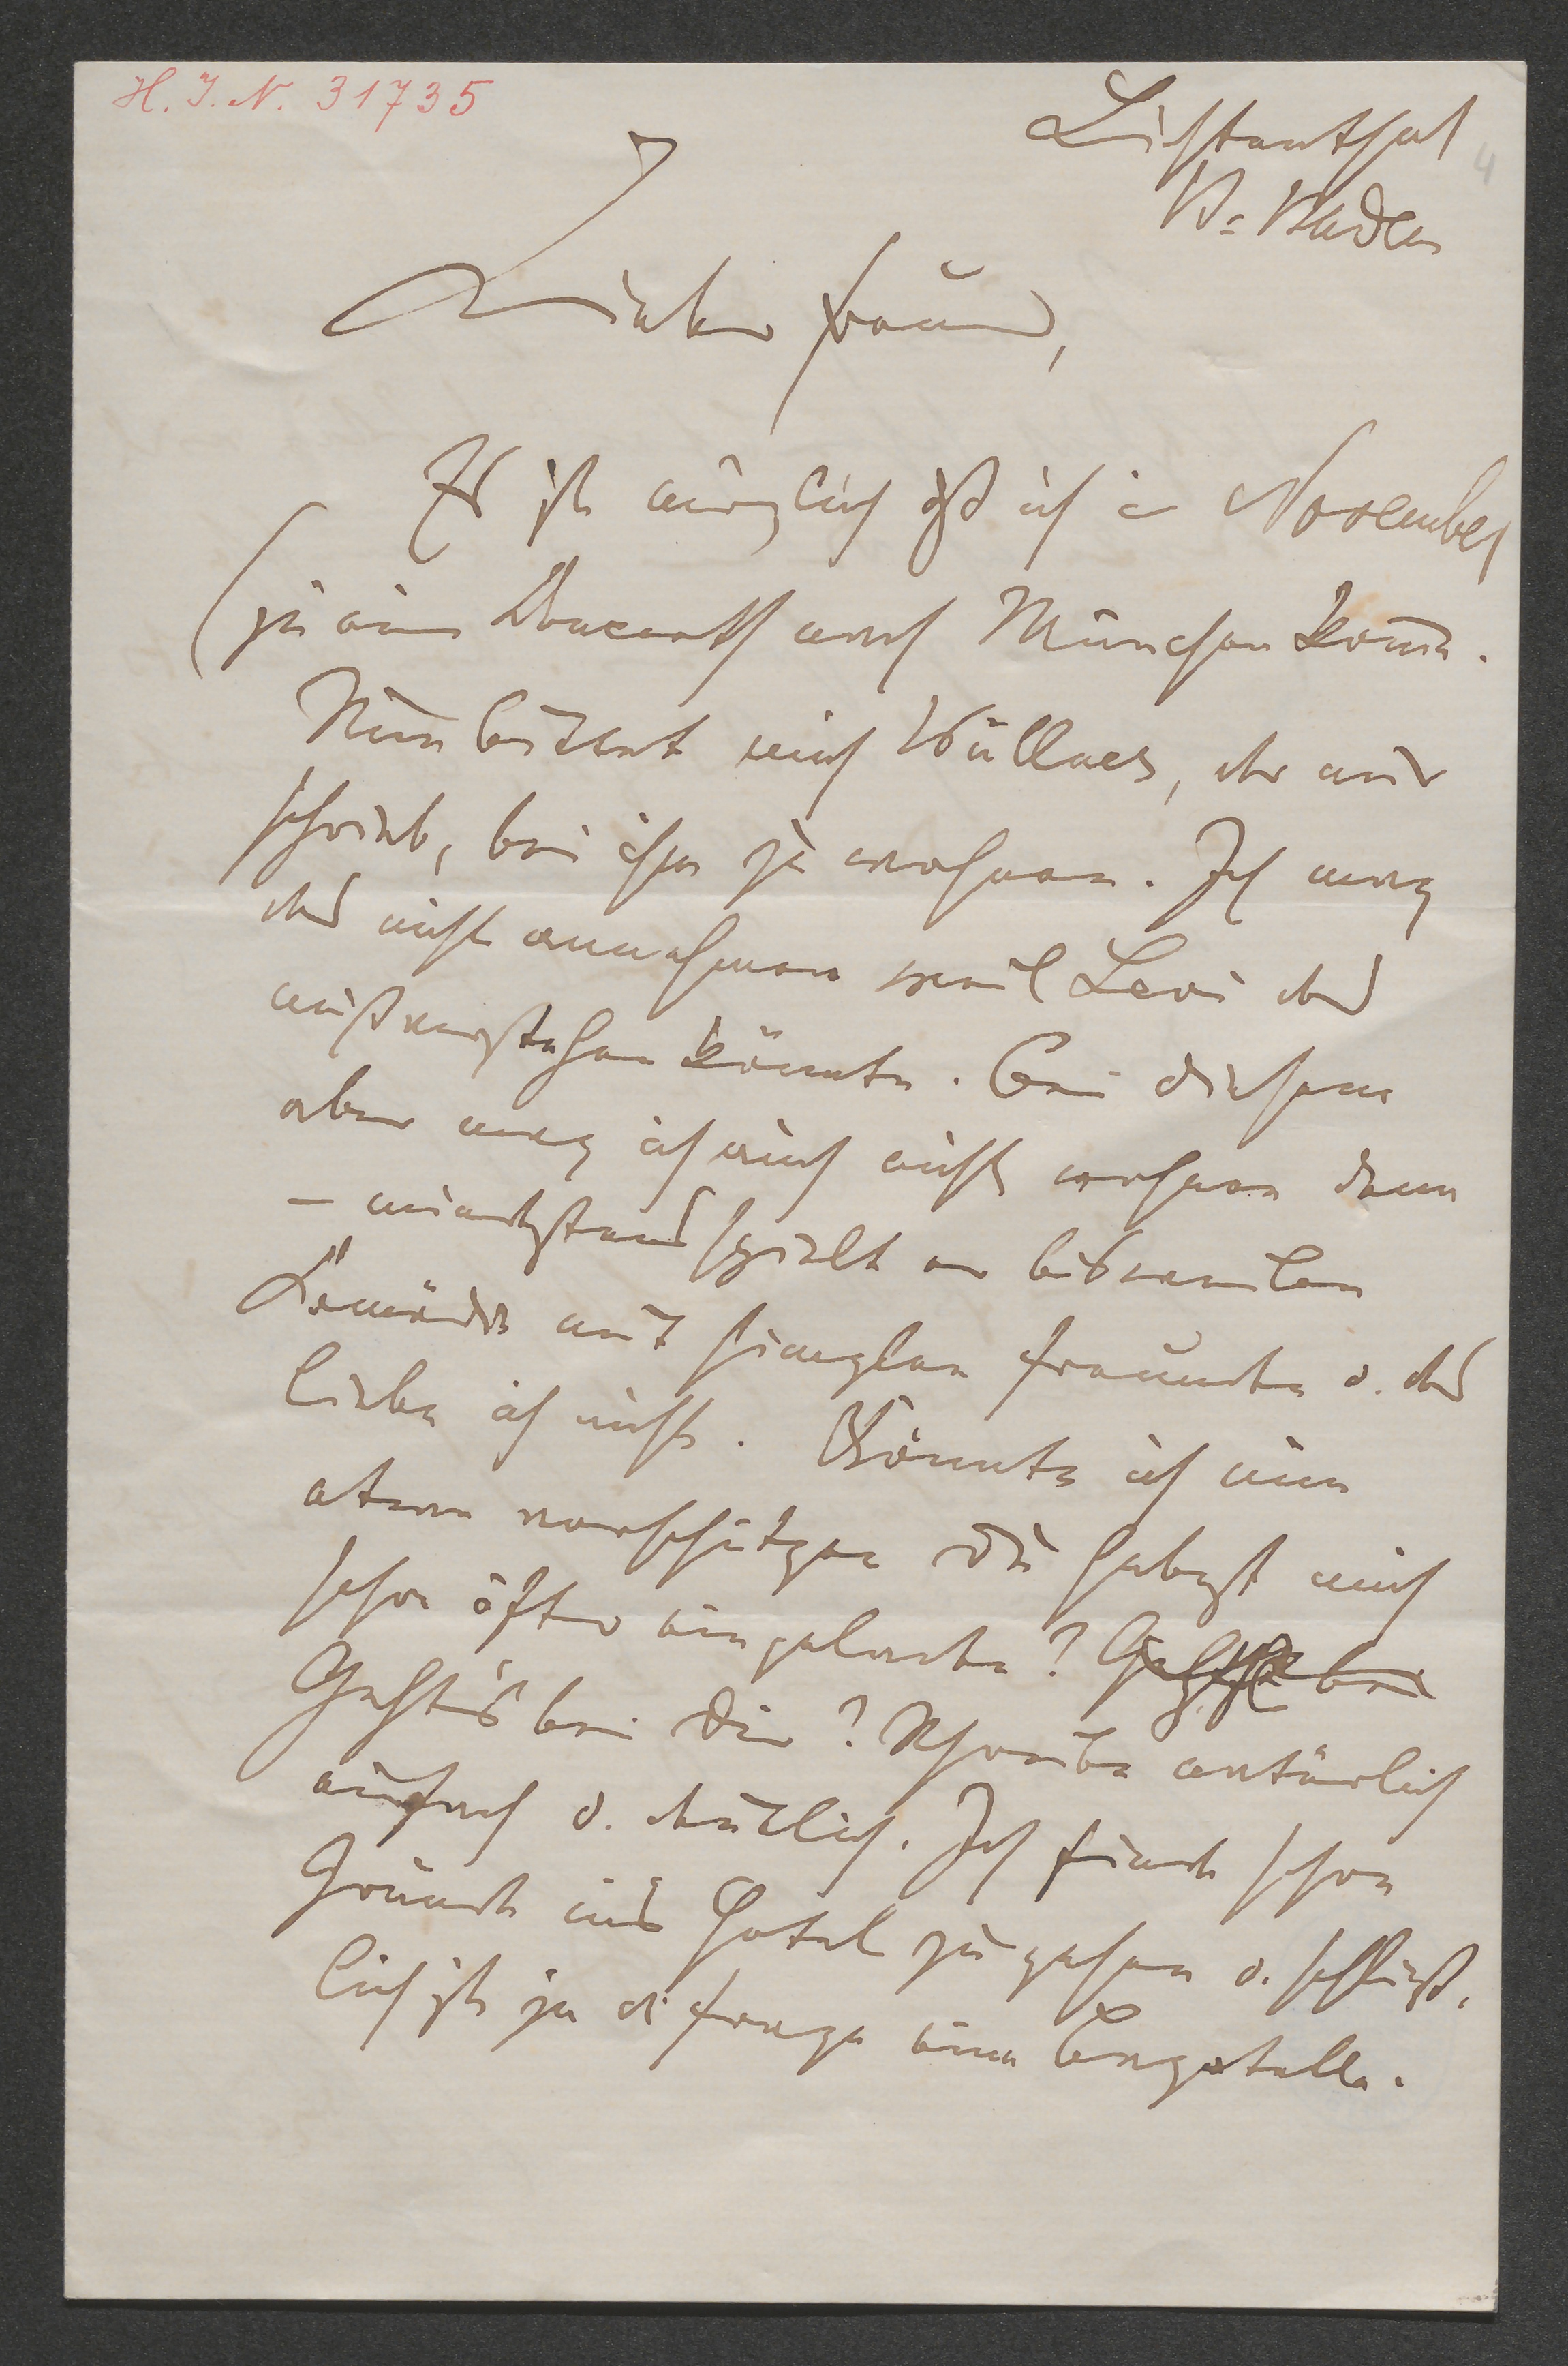 H. I. N. 31735
4
Lichtenthal
B. Baden
Lieber Freund,
Es ist möglich daß ich im November
(zu einem Concert) nach München komme.
Nun bittet mich Wüllner, der mir
schrieb, bei ihm zu wohnen. Ich mag
das nicht annehmen weil Levi das
mißverstehen könnte. Bei diesem
aber mag ich auch nicht wohnen denn
– mindestens spielt er bisweilen
Komödie mit seinen Freunden u. das
liebe ich nicht. Könnte ich nun
etwa vorschützen Du habest mich
schon öfter eingeladen? Gehts bei
Gehts bei Dir? Schreibe natürlich
einfach u. deutlich. Ich finde schon
Gründe ins Hotel zu gehen u. schließ-
lich ist ja die Frage eine Bagatelle.